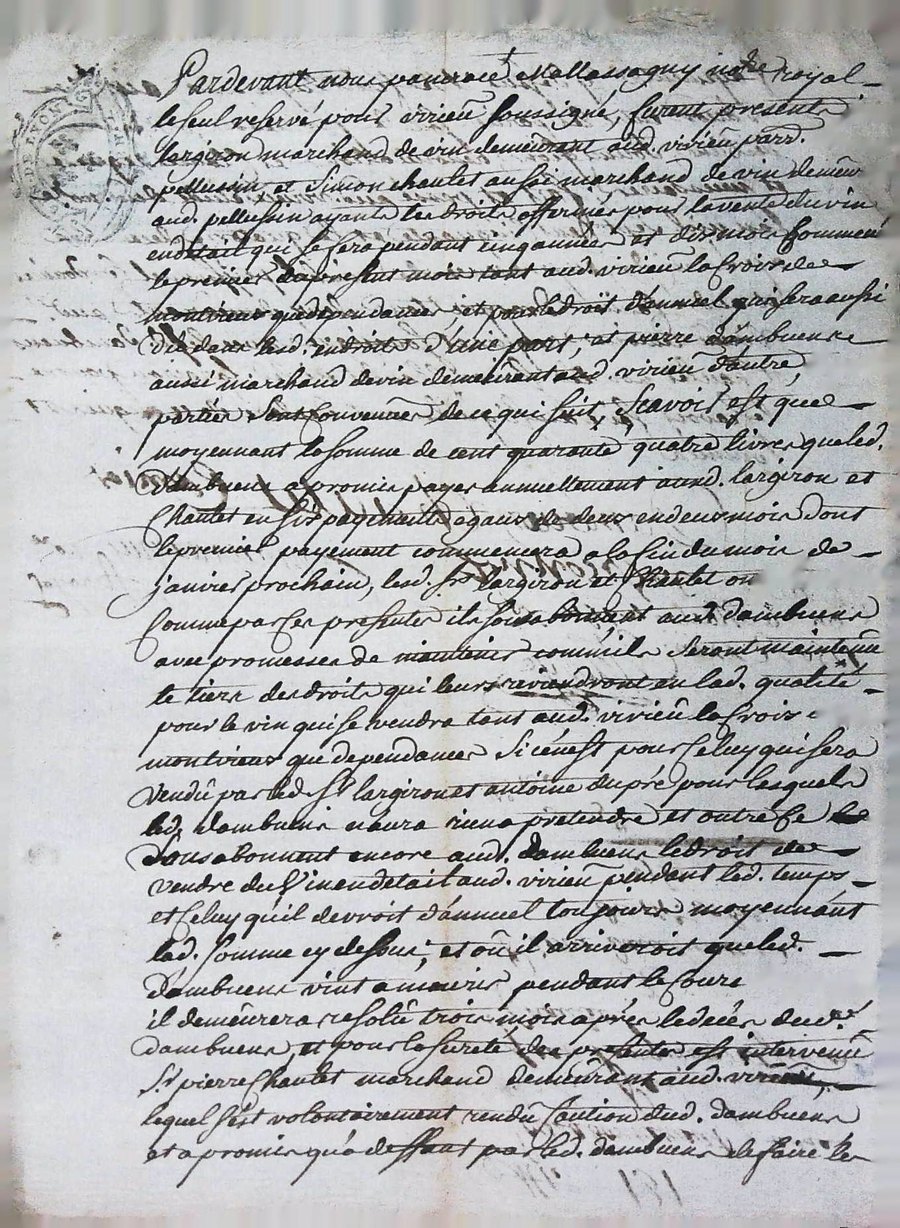 Pardevant nous pancrace Mallassagny not.re royal
le seul reservé pour virieu soussigné, furent presents
largiron marchand de vin demeurant aud. virieu parr.
pellussin et Simon chaulet aussi marchand de vin demeur
aud. pellussin ayants les droits affermés pour la vente du vin
en detail qui se fera pendant cinq années et dix mois Commencé
le premier du present mois tant aud. virieu la Croix de
montvieux que dependances et pour le droit d'annuel qui sera aussi
du dans lesd. endroits d'une part, et pierre dambuens
aussi marchand de vin demeurant aud. virieu d'autre
parties sont Convenües de ce qui suit, Scavoir est que
moyennant la somme de cent quarante quatre livres que led.
dambuens a promis payer annuellement auxd. largiron et
Chaulet en six payements egaux de deux en deux mois dont
le premier payement commencera a la fin du mois de
janvier prochain, lesd. srs largiron et Chaulet on
Comme par Ces presentes ils sousabonnent aud. dambuens
avec promesses de maintenir comm'ils seront maintenu
le tiers des droits qui leurs reviendront en lad. qualité
pour le vin qui se vendra tant aud. virieu la Croix
montvieux que dependances si ce n'est pour Celuy qui sera
Vendû par led. sr largiron et antoine dupré pour lesquels
led. dambuens n'aura rien a pretendre et outre Ce
Sousabonnent encore aud. dambuens le droit de
vendre du Vin en detail aud. virieu pendant led. temps
et Celuy qu'il devroit d'annuel toujours moyennant
lad. somme cy dessus, et où il arriveroit que led.
Dambuens vint a mourir pendant le Cours
il demeurera resolû trois mois aprés le decés dud.
dambuens, et pour la sureté des presentes est intervenu
Sr pierre Chaulet marchand demeurant aud. virieu,
lequel s'est volontairement rendû Caution dud. dambuens
et a promis qu'a deffaut par led. dambuens de faire les